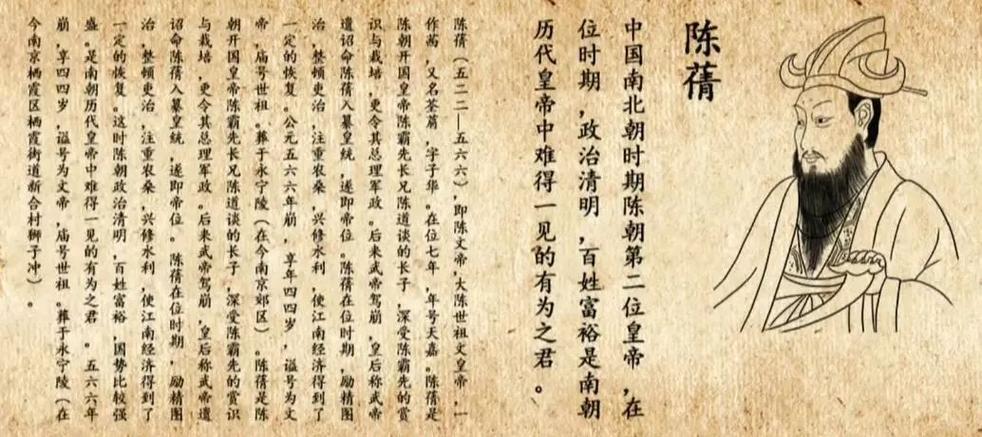 陈蒨
中国南北朝时期陈朝第二位皇帝,在
位时期,政治清明,百姓富裕是南朝
历代皇帝中难得一见的有为之君。
陈蒨(五二二—五六六),即陈文帝,大陈世祖文皇帝,一
作茜,又名荃菺,字子华。在位七年,年号天嘉。陈蒨是
陈朝开国皇帝陈霸先长兄陈道谈的长子,深受陈霸先的赏
识与栽培,更令其总理军政。后来武帝驾崩,皇后称武帝
遗诏命陈蒨入纂皇统,遂即帝位。陈蒨在位时期,励精图
治,整顿吏治,注重农桑,兴修水利,使江南经济得到了
一定的恢复。公元五六六年崩,享年四四岁,谥号为文
帝,庙号世祖。葬于永宁陵(在今南京郊区)。陈蒨是陈
朝开国皇帝陈霸先长兄陈道谈的长子,深受陈霸先的赏识
与栽培,更令其总理军政。后来武帝驾崩,皇后称武帝遗
诏命陈蒨入纂皇统,遂即帝位。陈蒨在位时期,励精图
治,整顿吏治,注重农桑,兴修水利,使江南经济得到了
一定的恢复。这时陈朝政治清明,百姓富裕,国势比较强
盛。是南朝历代皇帝中难得一见的有为之君。五六六年
崩,享四四岁,谥号为文帝,庙号世祖。葬于永宁陵(在
今南京栖霞区栖霞街道新合村狮子冲)。